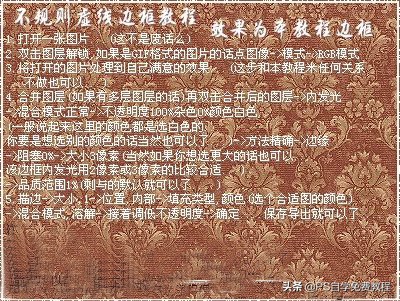 不规则虚线边框教程
效果为本教程边框
1.打开一张图片 (这不是废话么)
2.双击图层解锁,如果是GIF格式的图片的话点图像->模式->RGB模式
3.将打开的图片处理到自己满意的效果. (这步和本教程木任何关系
不做也可以 )
4.合并图层(如果有多层图层的话)再双击合并后的图层->内发光
->混合模式正常->不透明度100%杂色0%颜色白色
(一般说起来这里的颜色都是选白色的
你要是想选别的颜色的话当然也可以了 )->方法精确->边缘
->阻塞0%->大小3像素(当然如果你想选更大的话也可以
该边框内发光用2像素或3像素的比较合适 )
->品质范围1%(剩与的默认就可以了 )
5.描边->大小,1->位置,内部->填充类型,颜色(选个合适图的颜色)
->混合模式,溶解->接着调低不透明度->确定 保存导出就可以了
头条 @PS自学免费教程